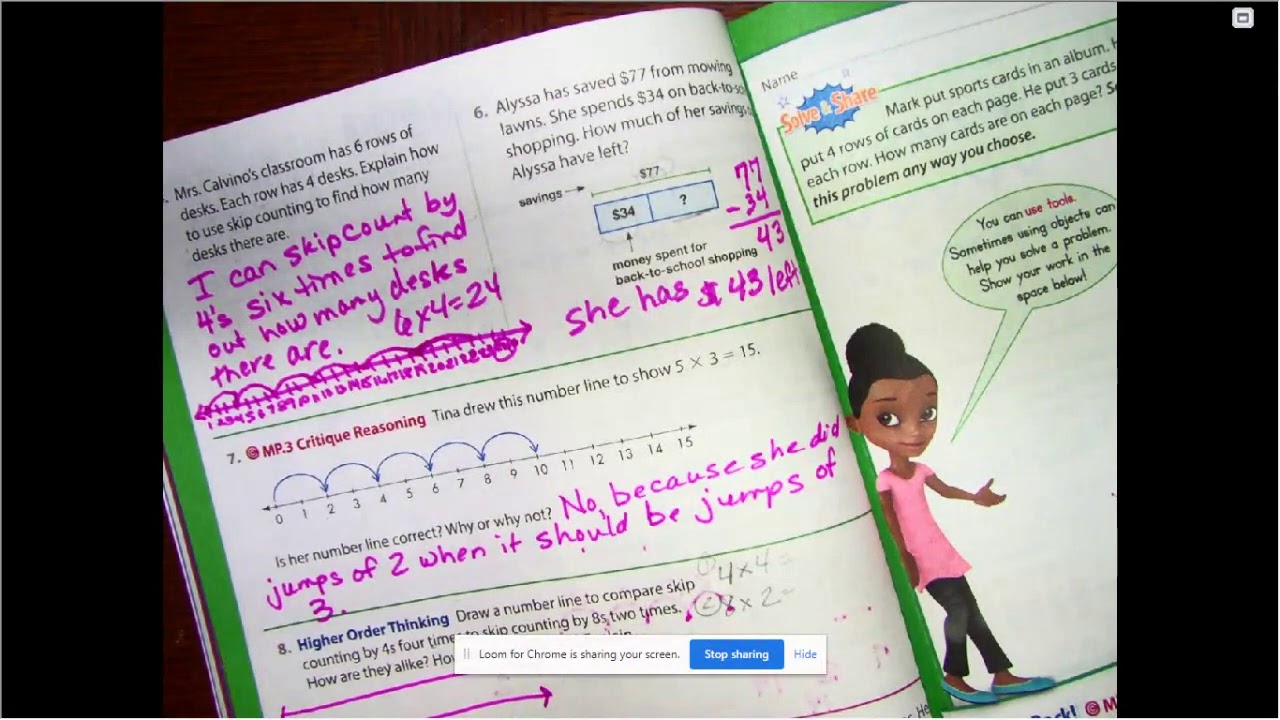 Mrs. Calvino's classroom has 6 rows of
desks. Each row has 4 desks. Explain how
to use skip counting to find how many
desks there are.
I can skip count by
4's six times to find
out how many desks
there are. 6x4=24
6. Alyssa has saved $77 from mowing
lawns. She spends $34 on
shopping. How much of her savings
Alyssa have left?
$77
savings
$34 ?
money spent for
back-to-school shopping
77
- 34
43
she has $43 left
7. MP.3 Critique Reasoning Tina drew this number line to show 5 × 3 = 15.
0 1 2 3 4 5 6 7 8 9 10 11 12 13 14 15
Is her number line correct? Why or why not? No, because she did
jumps of 2 when it should be jumps of
3.
4x4=
8x2=
8. Higher Order Thinking Draw a number line to compare skip
counting by 4s four times to skip counting by 8s two times.
How are they alike?
Name
Solve & Share
Mark put sports cards in an album.
put 4 rows of cards on each page. He put 3 cards
each row. How many cards are on each page?
this problem any way you choose.
You can use tools.
Sometimes using objects can
help you solve a problem.
Show your work in the
space below!
Loom for Chrome is sharing your screen. Stop sharing Hide